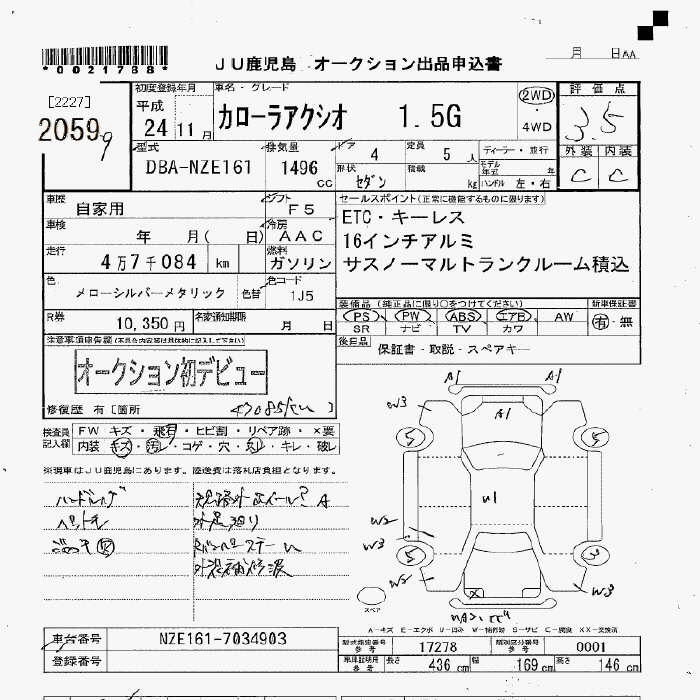 月 日AA
*0021788*
JU鹿児島 オークション出品申込書
[2227]
2059
9
初度登録年月
平成
24 11 月
車名・グレード
カローラアクシオ 1.5G
2WD
・
4WD
評価点
3.5
外装 内装
C C
型式
DBA-NZE161
排気量
1496 cc
ドア
4
定員
5 人
ディーラー・並行
形状
セダン
積載
kg
モデル年式 年
ハンドル 左・右
車歴
自家用
シフト
F5
車検
年 月( 日)
冷房
AAC
走行
4万7千084 km
燃料
ガソリン
色
メローシルバーメタリック
色替
色コード
1J5
R券
10,350 円
名変通知期限
月 日
セールスポイント(正常に機能するものに限ります)
ETC・キーレス
16インチアルミ
サスノーマルトランクルーム積込
装備品(純正品に限り○をつけてください)
PS PW ABS エアB AW
SR ナビ TV カワ
新車保証書
有・無
後日品
保証書・取説・スペアキー
注意事項申告欄
オークション初デビュー
修復歴 有[箇所
47085km ]
検査員記入欄
FW キズ・飛石・ヒビ割・リペア跡・×要
内装 キズ・汚れ・コゲ・穴・スレ・キレ・破レ
※現車はJU鹿児島にあります。陸送費は落札店負担となります。
A1 A1
W3
A1
5 5
U1
W2
W3
5 3
W2
W3
X
スペア
A-キズ E-エクボ U-凹み W-補修跡 S-サビ C-腐食 XX-交換済
車台番号
NZE161-7034903
登録番号
型式指定番号 参考
17278
類別区分番号 参考
0001
車庫証明用 参考
長さ 436 cm
幅 169 cm
高さ 146 cm